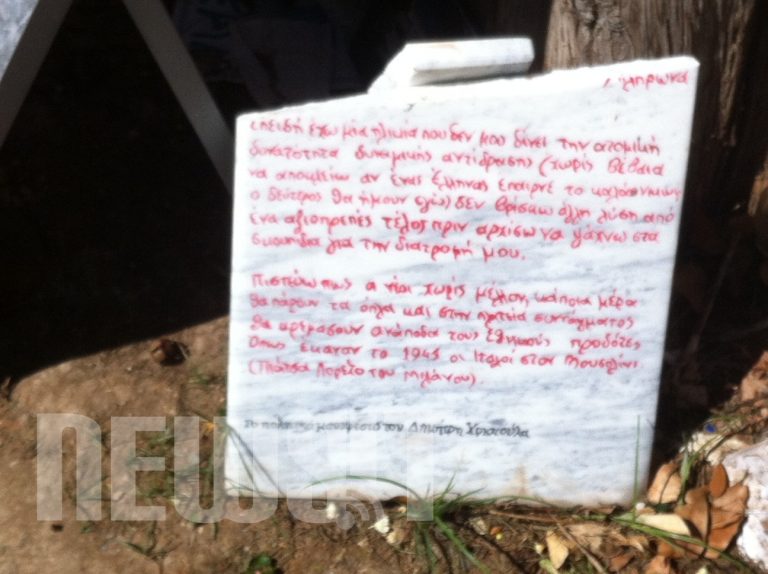 επειδή έχω μία ηλικία που δεν μου δίνει την ατομική
δυνατότητα δυναμικής αντίδρασης (χωρίς βέβαια
να αποκλείω αν ένας Έλληνας έπαιρνε το καλάσνικωφ
ο δεύτερος θα ήμουν εγώ) δεν βρίσκω άλλη λύση από
ένα αξιοπρεπές τέλος πριν αρχίσω να ψάχνω στα
σκουπίδια για την διατροφή μου.
Πιστεύω πως οι νέοι χωρίς μέλλον, κάποια μέρα
θα πάρουν τα όπλα και στην πλατεία συντάγματος
θα κρεμάσουν ανάποδα τους εθνικούς προδότες
όπως έκαναν το 1945 οι Ιταλοί στον Μουσολίνι
(Πιάτσα Λορέτο του Μιλάνου).
το πολιτικό μανιφέστο του Δημήτρη Χριστούλα